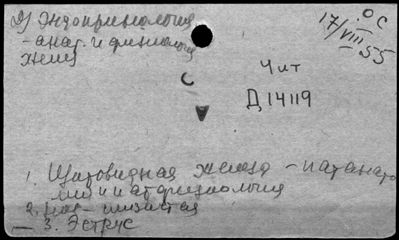 2) Эндокринология
- анат. и физиология
желез
ОС
17/VIII 55
Чит
Д 14119
1. Щитовидная железа - патанато
мия и патфизиология
2. слизистая
3. Эструс